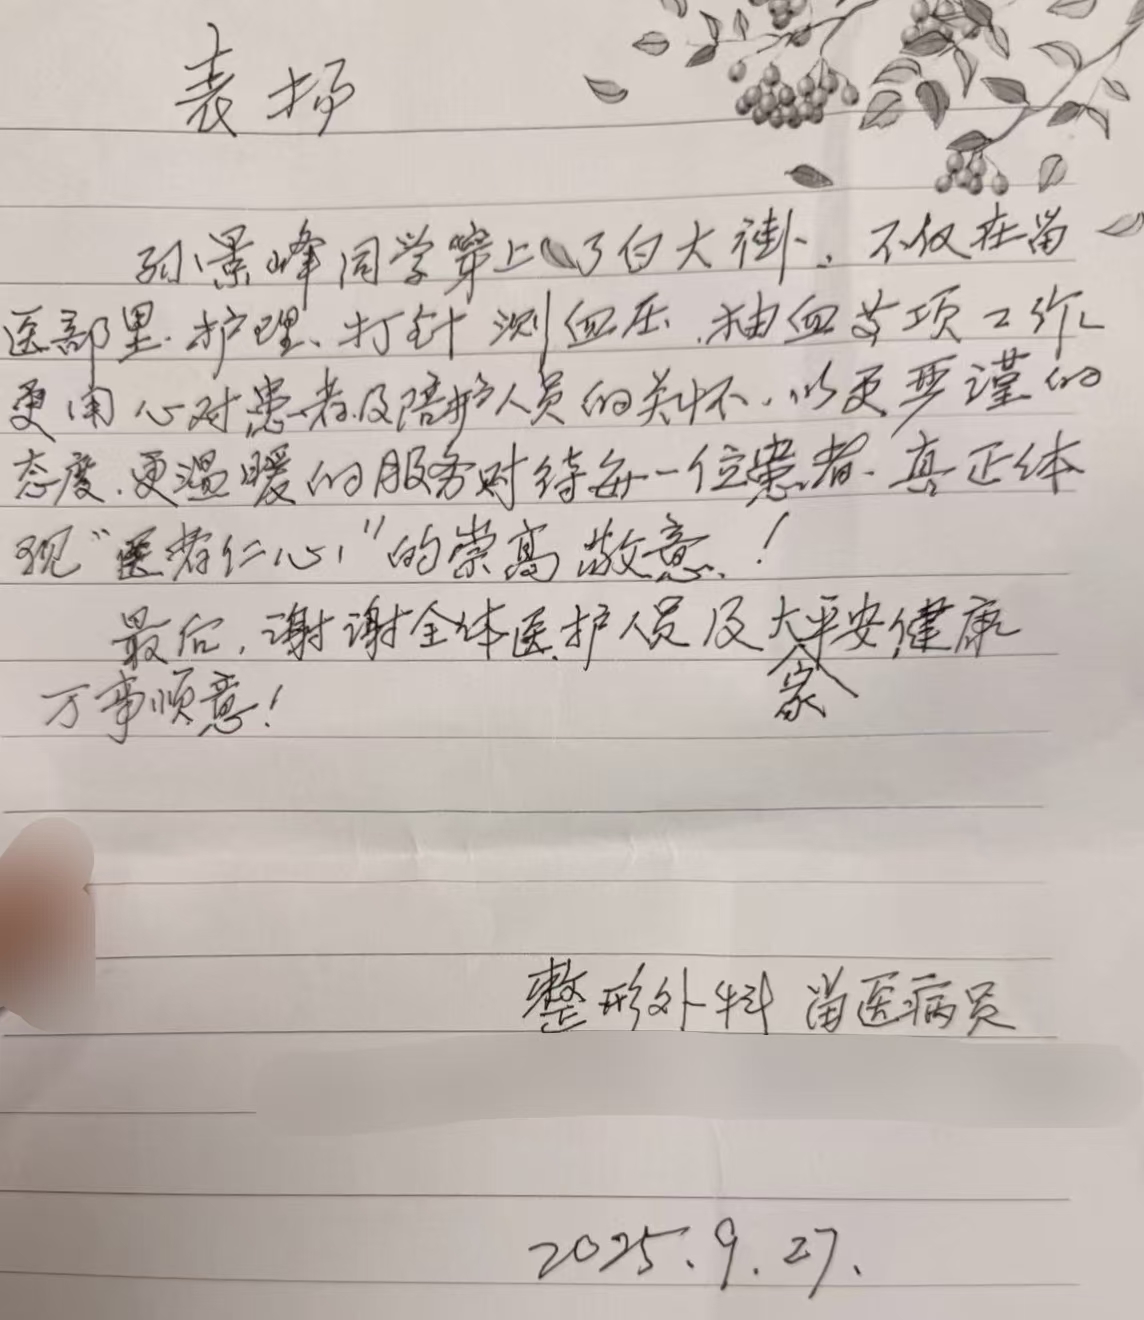 表扬
孙景峰同学穿上了白大褂、不仅在留
医部里.护理、打针 测血压.抽血等项工作
更用心对患者及陪护人员的关怀.以更严谨的
态度.更温暖的服务对待每一位患者.真正体
现“医者仁心”的崇高敬意!
最后,谢谢全体医护人员及大家平安健康
万事顺意!
整形外科 留医病员
2025.9.27.